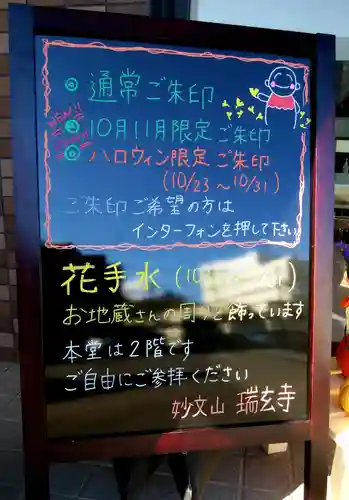 ◎ 通常ご朱印
◎ 10月11月限定ご朱印
◎ ハロウィン限定ご朱印
(10/23～10/31)
ご朱印ご希望の方は
インターフォンを押して下さい
花手水
お地蔵さんの周りに飾っています
本堂は2階です
ご自由にご参拝ください
妙文山 瑞玄寺